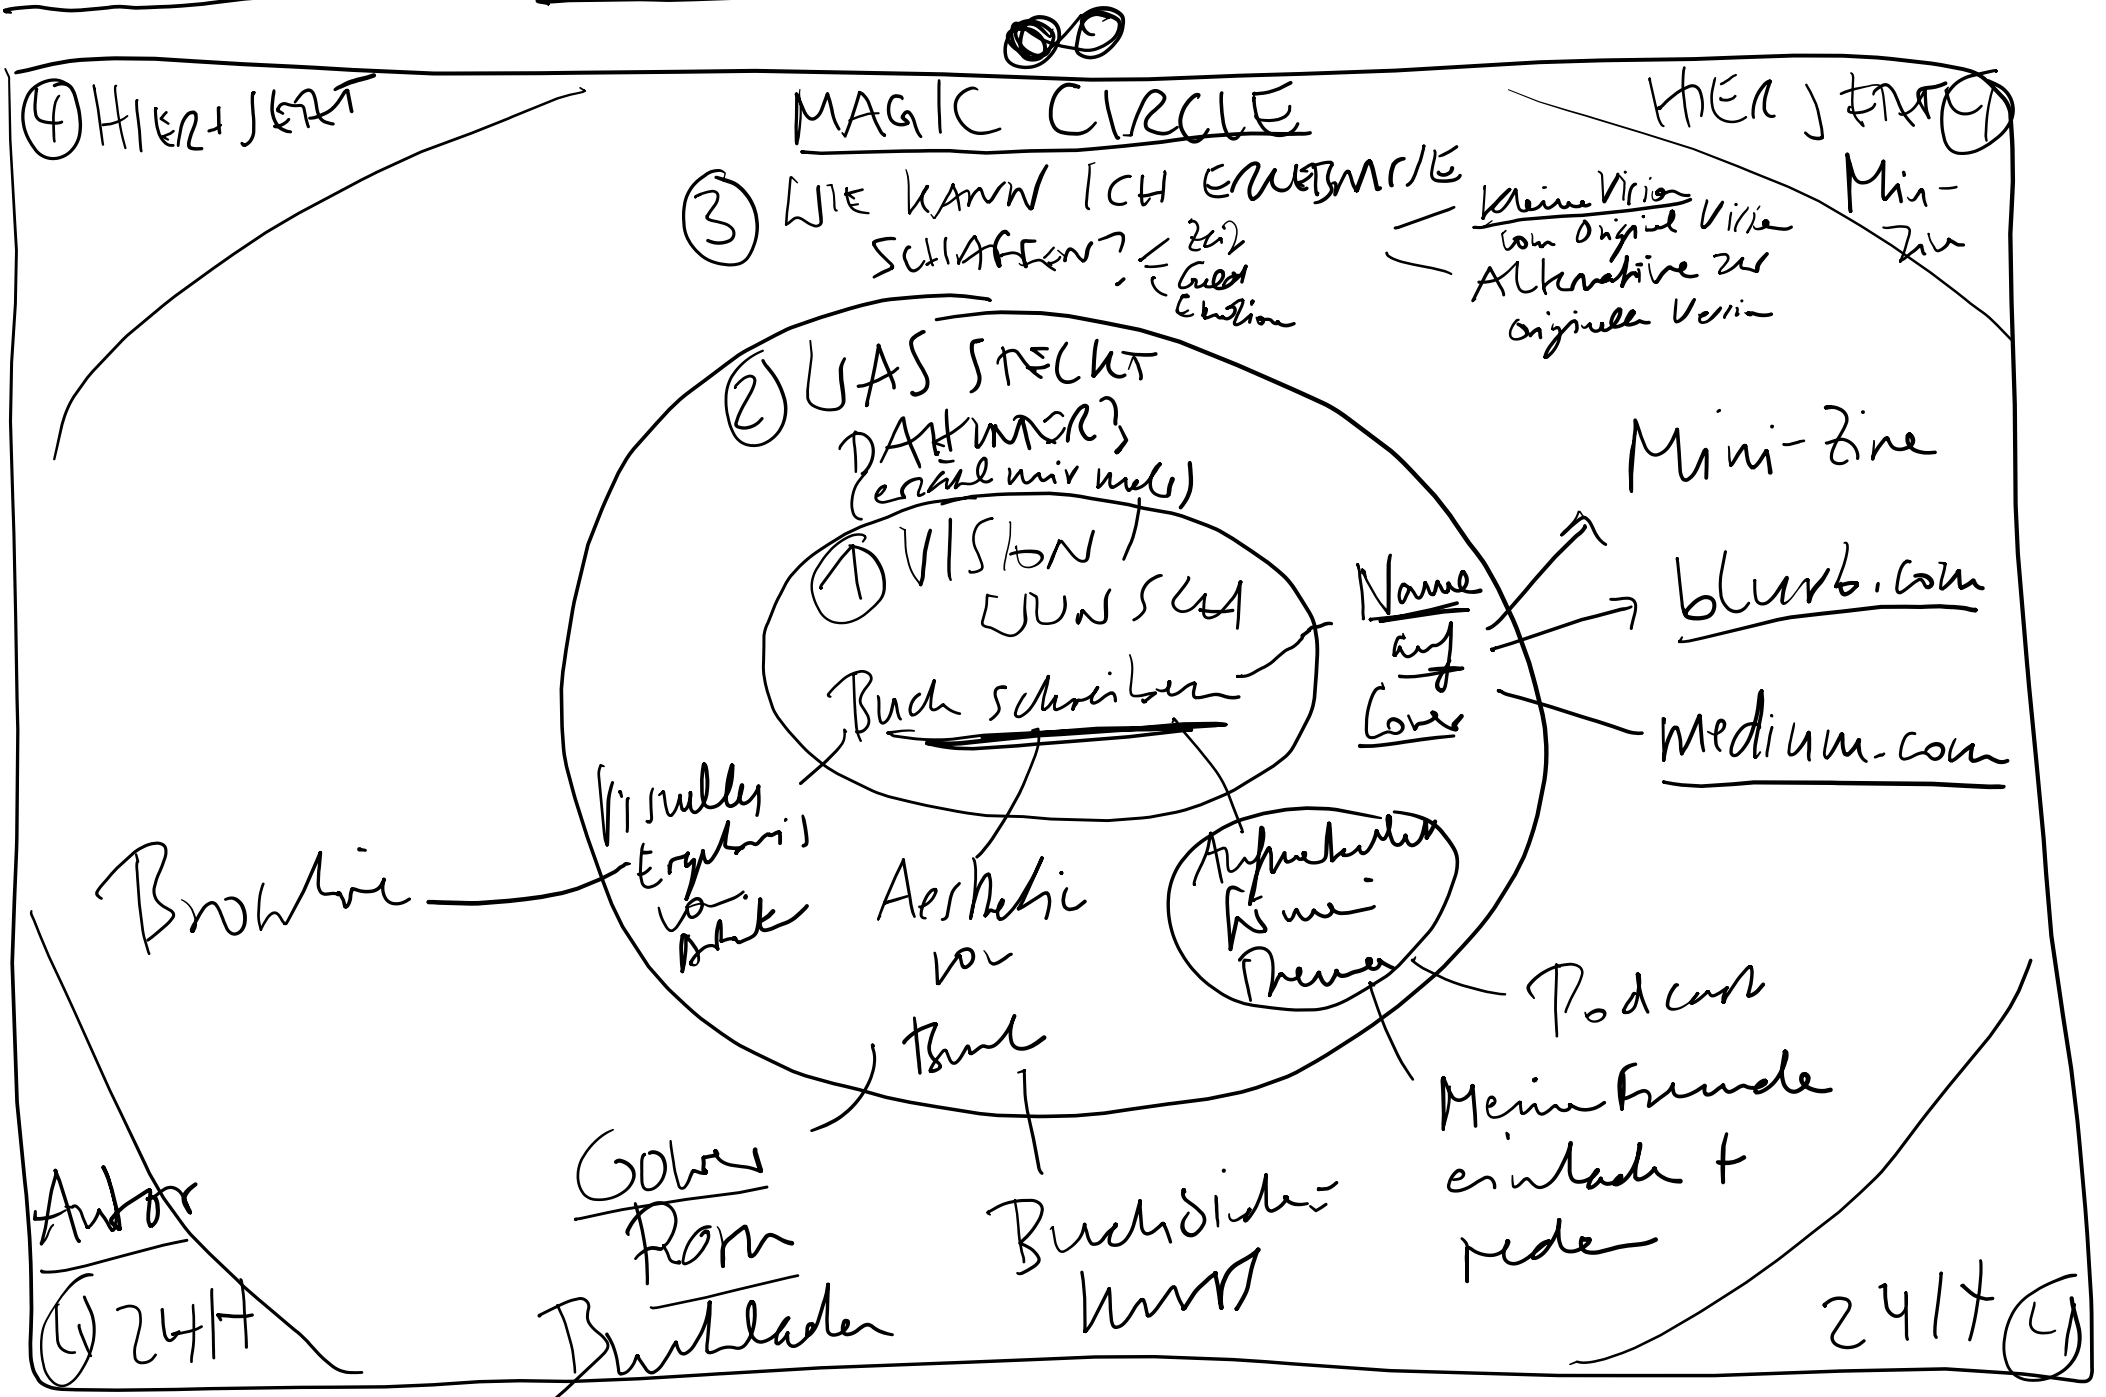 MAGIC CIRCLE
4 HIER + JETZT
HIER JETZT 4
Mini-
Zine
3 WIE KANN ICH ERLEBNISSE
SCHAFFEN?
Zeit
Geld
Emotion
Kleine Vision
vom Original Vision
Alternative zur
originellen Version
2 WAS STECKT
DAHINTER?
(erzähl mir mehr)
1 VISION
WUNSCH
Buch schreiben
Name
auf
Cover
Mini-Zine
blurb.com
medium.com
Visuelles
Ergebnis
von
Arbeit
Aesthetic
von
Buch
Aufmerksamkeit
für mein
Thema
Podcast
Meine Freunde
einladen +
reden
Broschüre
Cover
Porn
Buchladen
Buchbinde-
kurs
Autor
4 24H
24H 4